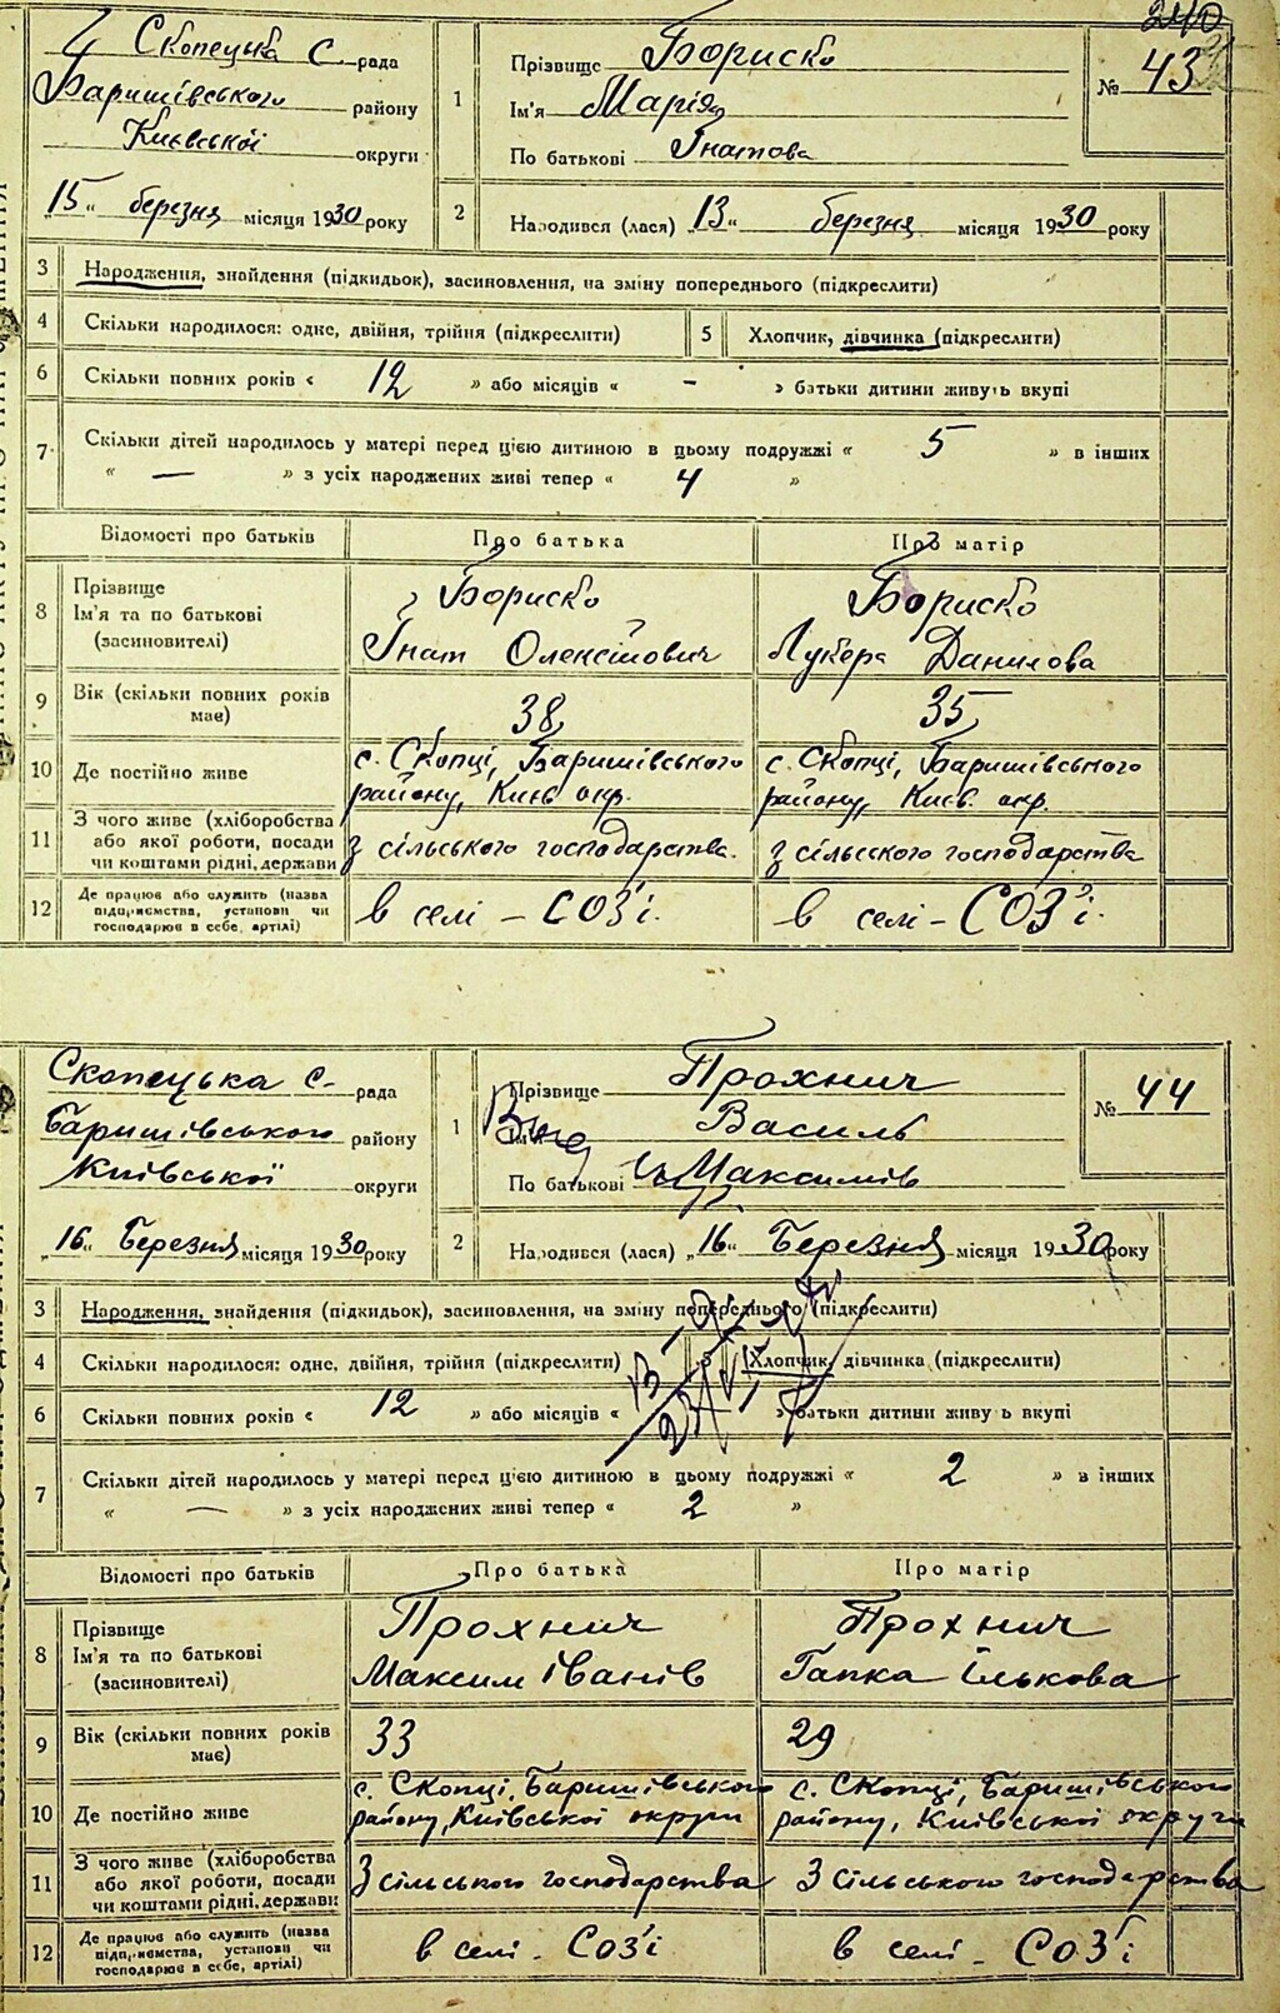 240
Скопецька с. рада
Баришівського району
Киевськоі округи
„15“ березня місяця 1930 року
1
Прізвище Бориско
Ім'я Марія
По батькові Гнатова
№ 43
2
Народився (лася) „13“ березня місяця 1930 року
3 Народження, знайдення (підкидьок), засиновлення, на зміну попереднього (підкреслити)
4 Скільки народилося: одне, двійня, трійня (підкреслити) 5 Хлопчик, дівчинка (підкреслити)
6 Скільки повних років « 12 » або місяців « - » батьки дитини живуть вкупі
7 Скільки дітей народилось у матері перед цією дитиною в цьому подружжі « 5 » в інших
« — » з усіх народжених живі тепер « 4 »
Відомості про батьків Про батька Про матір
8 Прізвище
Ім'я та по батькові
(засиновителі)
Бориско
Гнат Олексійович
Бориско
Лукера Данилова
9 Вік (скільки повних років
має)
38
35
10 Де постійно живе
с. Скопці, Баришівського
району, Київ окр.
с. Скопці, Баришівського
району, Києв. окр.
11 З чого живе (хліборобства
або якої роботи, посади
чи коштами рідні, держави
З сільського господарства.
З сільсского господарства
12 Де працює або служить (назва
підприємства, установи чи
господарює в себе, артілі)
в селі - СОЗ'і.
в селі - СОЗ'і.
Скопецька с. рада
Баришівського району
Київської округи
„16“ Березня місяця 1930 року
1
Прізвище Прохнич
Ім'я Василь
По батькові Максимів
№ 44
2
Народився (лася) „16“ Березня місяця 1930 року
3 Народження, знайдення (підкидьок), засиновлення, на зміну попереднього (підкреслити)
4 Скільки народилося: одне, двійня, трійня (підкреслити) 5 Хлопчик, дівчинка (підкреслити)
6 Скільки повних років « 12 » або місяців « » батьки дитини живу ь вкупі
7 Скільки дітей народилось у матері перед цією дитиною в цьому подружжі « 2 » в інших
« — » з усіх народжених живі тепер « 2 »
Відомості про батьків Про батька Про матір
8 Прізвище
Ім'я та по батькові
(засиновителі)
Прохнич
Максим Іванів
Прохнич
Гапка Ількова
9 Вік (скільки повних років
має)
33
29
10 Де постійно живе
с. Скопці, Баришівського
району, Київської округи
с. Скопці, Баришівського
району, Київської округи
11 З чого живе (хліборобства
або якої роботи, посади
чи коштами рідні, держави
З сільського господарства
З сільського господарства
12 Де працює або служить (назва
підприємства, установи чи
господарює в себе, артілі)
в селі - Соз'і
в селі - Соз'і